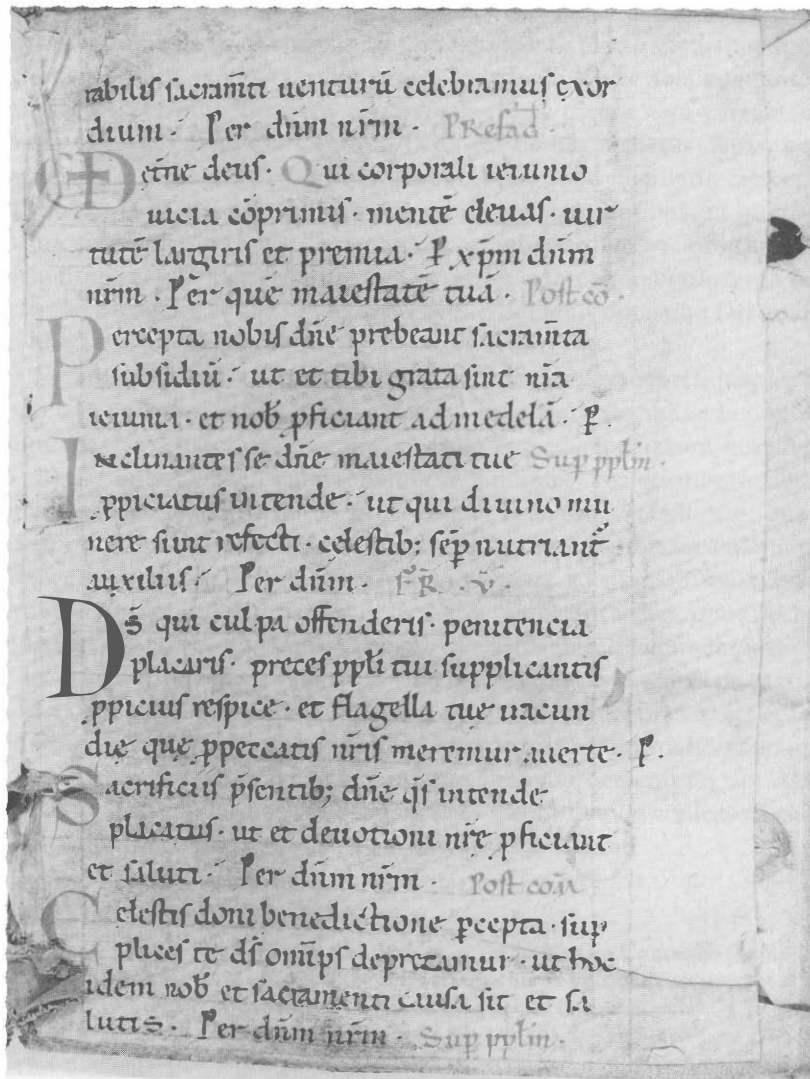 rabilis sacram̄ti uenturū celebramus exor
dium. Per dn̄m nr̄m. Prefac̄.
E et̄ne deus. Qui corporali ieiunio
uicia cōprimis. mentē eleuas. uir
tutē largiris et premia. P̲ xp̄m dn̄m
nr̄m. Per quē maiestatē tuā. Post cō.
Percepta nobis dn̄e prebeant sacram̄ta
subsidiū. ut et tibi grata sint nr̄a
ieiunia. et nob̄ p̲ficiant ad medelā. P̲.
Inclinantes se dn̄e maiestati tue Sup̲ pp̄lm̄.
p̲piciatus intende. ut qui diuino mu
nere sunt refecti. celestib; sēp nutriant᷑
auxiliis. Per dn̄m. F̄R̄. V̄.
Ds̄ qui culpa offenderis. penitencia
placaris. preces pp̄li tui supplicantis
p̲picius respice. et flagella tue iracun
die que p̲ peccatis nr̄is meremur auerte. P̲.
Sacrificiis p̄sentib; dn̄e q̄s intende
placatus. ut et deuotioni nr̄e p̲ficiant
et saluti. Per dn̄m nr̄m. Post com̄
Celestis doni benedictione p̲cepta. sup
plices te ds̄ om̄ps deprecamur. ut hoc
idem nob̄ et sacramenti causa sit et sa
lutis. Per dn̄m nr̄m. Sup̲ pp̄lm̄.